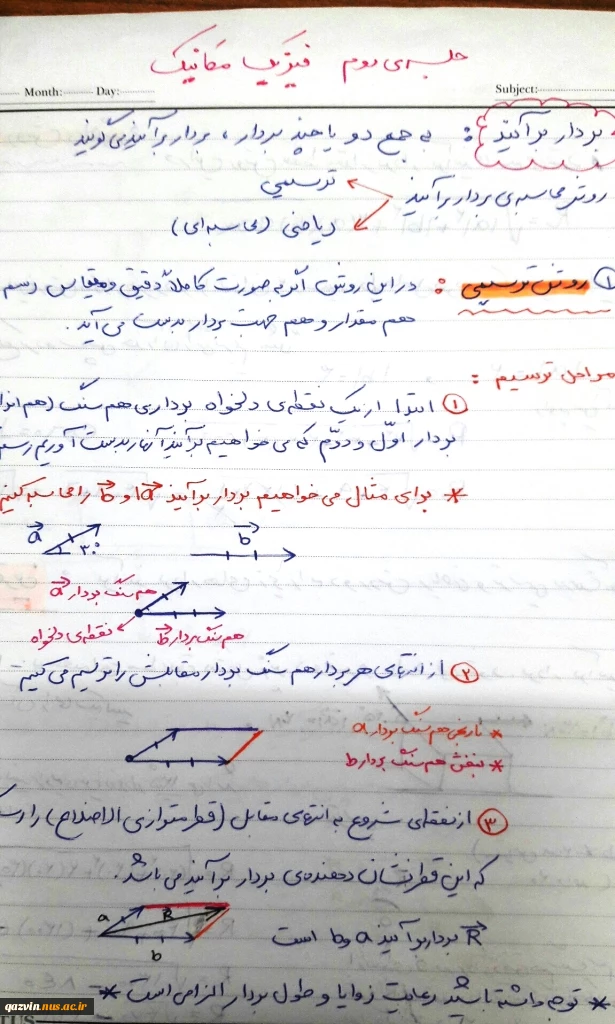 جلسه‌ی دوم فیزیک مکانیک
Month: Day: Subject:
بردار برآیند : به جمع دو یا چند بردار، بردار برآیند می‌گویند
روش محاسبه‌ی بردار برآیند
ترسیمی
ریاضی (محاسبه‌ای)
① روش ترسیمی : در این روش اگر به صورت کاملاً دقیق و مقیاس رسم
هم مقدار و هم جهت بردار بدست می‌آید.
مراحل ترسیم :
① ابتدا از یک نقطه‌ی دلخواه برداری هم سنگ (هم
بردار اوّل و دوّم که می‌خواهیم برآیند آنها را بدست آوریم رسم
* برای مثال می‌خواهیم بردار برآیند a و b را محاسبه کنیم
a ۳۰° b
هم سنگ بردار a
هم سنگ بردار b
نقطه‌ی دلخواه
② از انتهای هر بردار هم سنگ بردار مقابلش را ترسیم می‌کنیم
* نارنجی هم سنگ بردار a
* بنفش هم سنگ بردار b
③ از نقطه‌ی شروع به انتهای مقابل (قطر متوازی الاضلاع) را
که این قطر نشان دهنده‌ی بردار برآیند می باشد.
a R b
R بردار برآیند a و b است
* توجه داشته باشید رعایت زوایا و طول بردار الزامی است *
qazvin.nus.ac.ir